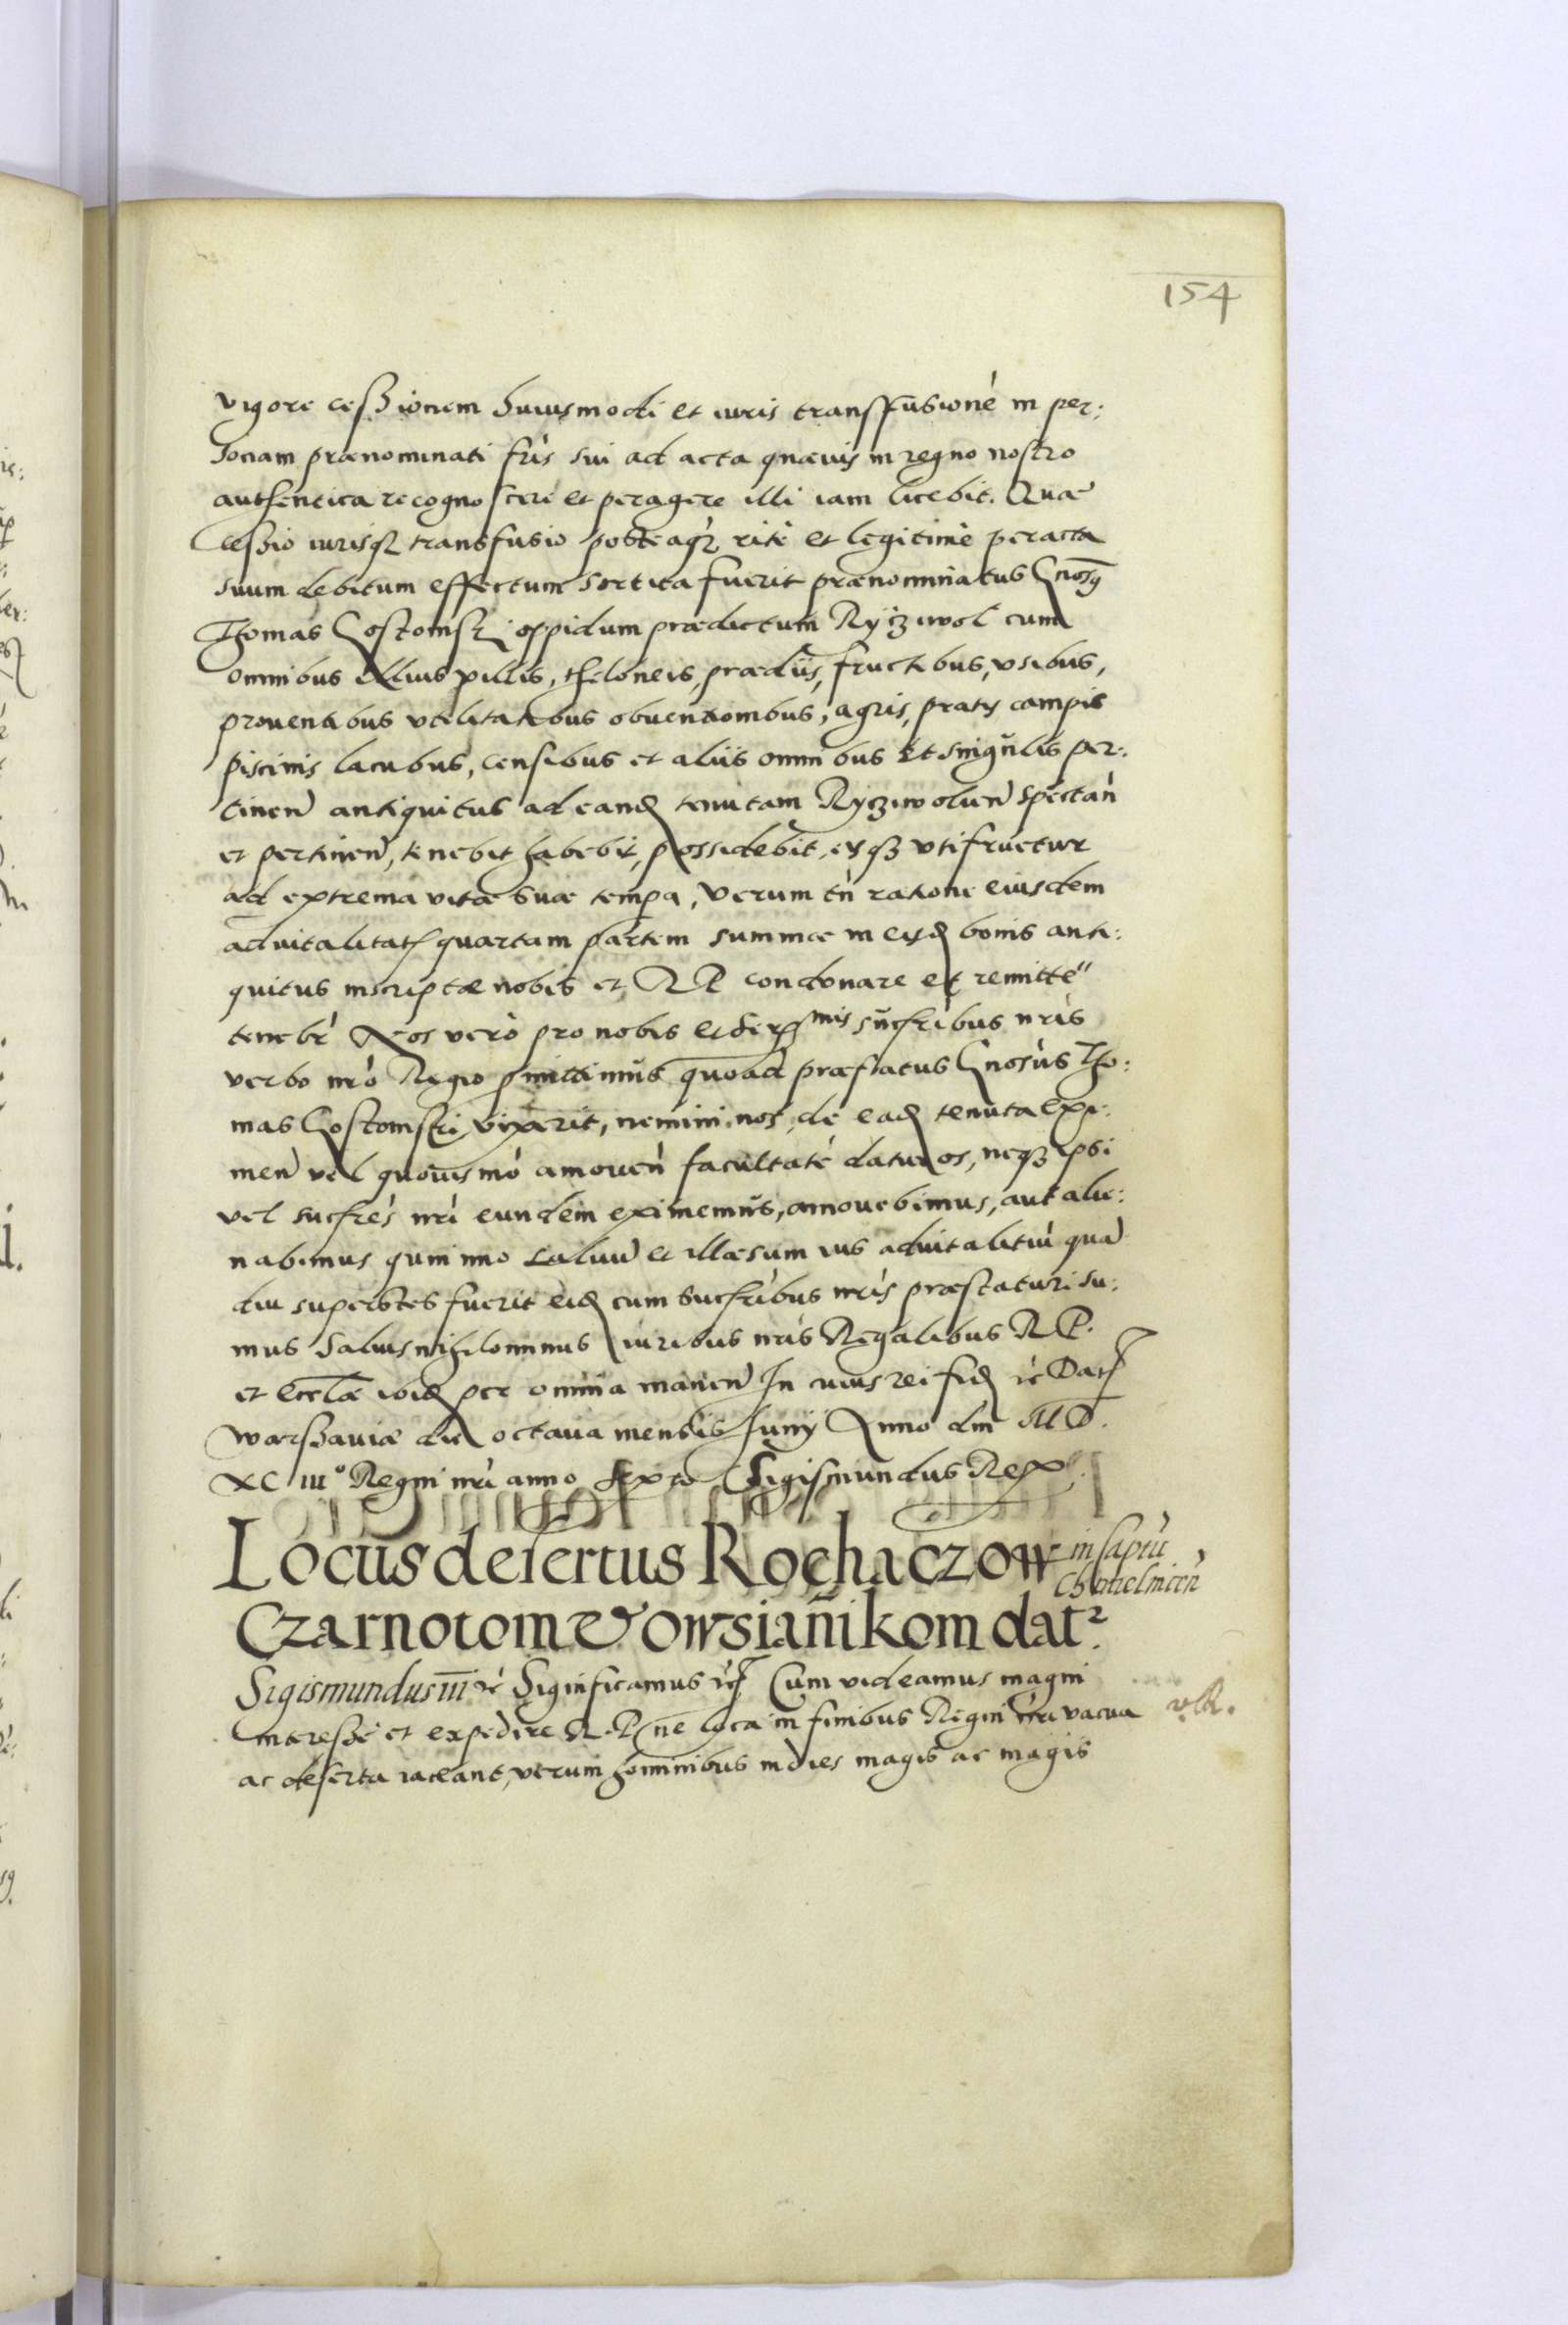 154
vigore cessionem huiusmodi et iuris transffusionè in per:
sonam prænominati fris sui ad acta quævis in regno nostro
authentica recognoscere et peragere illi iam licebit. Quæ
cessio iurisq3 transfusio posteaq3 ritè et legitimè peracta
suum debitum effectum sortita fuerit prænominatus Gnosq
Thomas Gostomski oppidum prædictum Ryczÿwol cum
omnibus illius villis, theloneis, prædiis, fructibus, vsibus,
prouentibus vtilitatibus obuentionibus, agris, pratis campis
piscinis lacubus, censibus et aliis omnibus et singulis per:
tinen antiquitus ad eand tenutam Ryczÿwolien spectan
et pertinen, tenebit habebit, possidebit, eisq3 vtifruetur
ad extrema vitæ suæ tempa, verum tn ratione eiusdem
aduitalitat quartam partem summæ in eisd bonis anti:
quitus inscriptæ nobis et RP condonare et remitte
tenebr Nos vero pro nobis et Ser^mis sucribus nris
verbo nrò Regio pmittimus quoad præfatus Gnosus Tho:
mas Gostomski vixerit, nemini nos, de ead tenuta exi:
men vel quouismò amouen facultatè daturos, neq3 ipsi
vel sucfrés nri eundem eximemus, amouebimus, aut alie:
nabimus quin imo saluu et illæsum ius aduitalitiu qua
diu superstes fuerit eid cum sucfribus nris præstaturi su:
mus Saluis nihilominus iuribus nris Regalibus RP.
et Ecclæ ibid per omnia manen In cuius rei fid rc Dat
Warssauiæ die octaua mensis Junij Anno dni MD.
XC iii° Regni nri anno sexto Sigismundus Rex
Locus desertus Rochaczow in captu
Chmielnicen
Czarnotom & Owsianikom dat.
Sigismundus iii rc Significamus rc Cum videamus magni
interesse et expedire R.P ne loca in finibus Regni nri vacua
ac deserta iaceant, verum hominibus indies magis ac magis